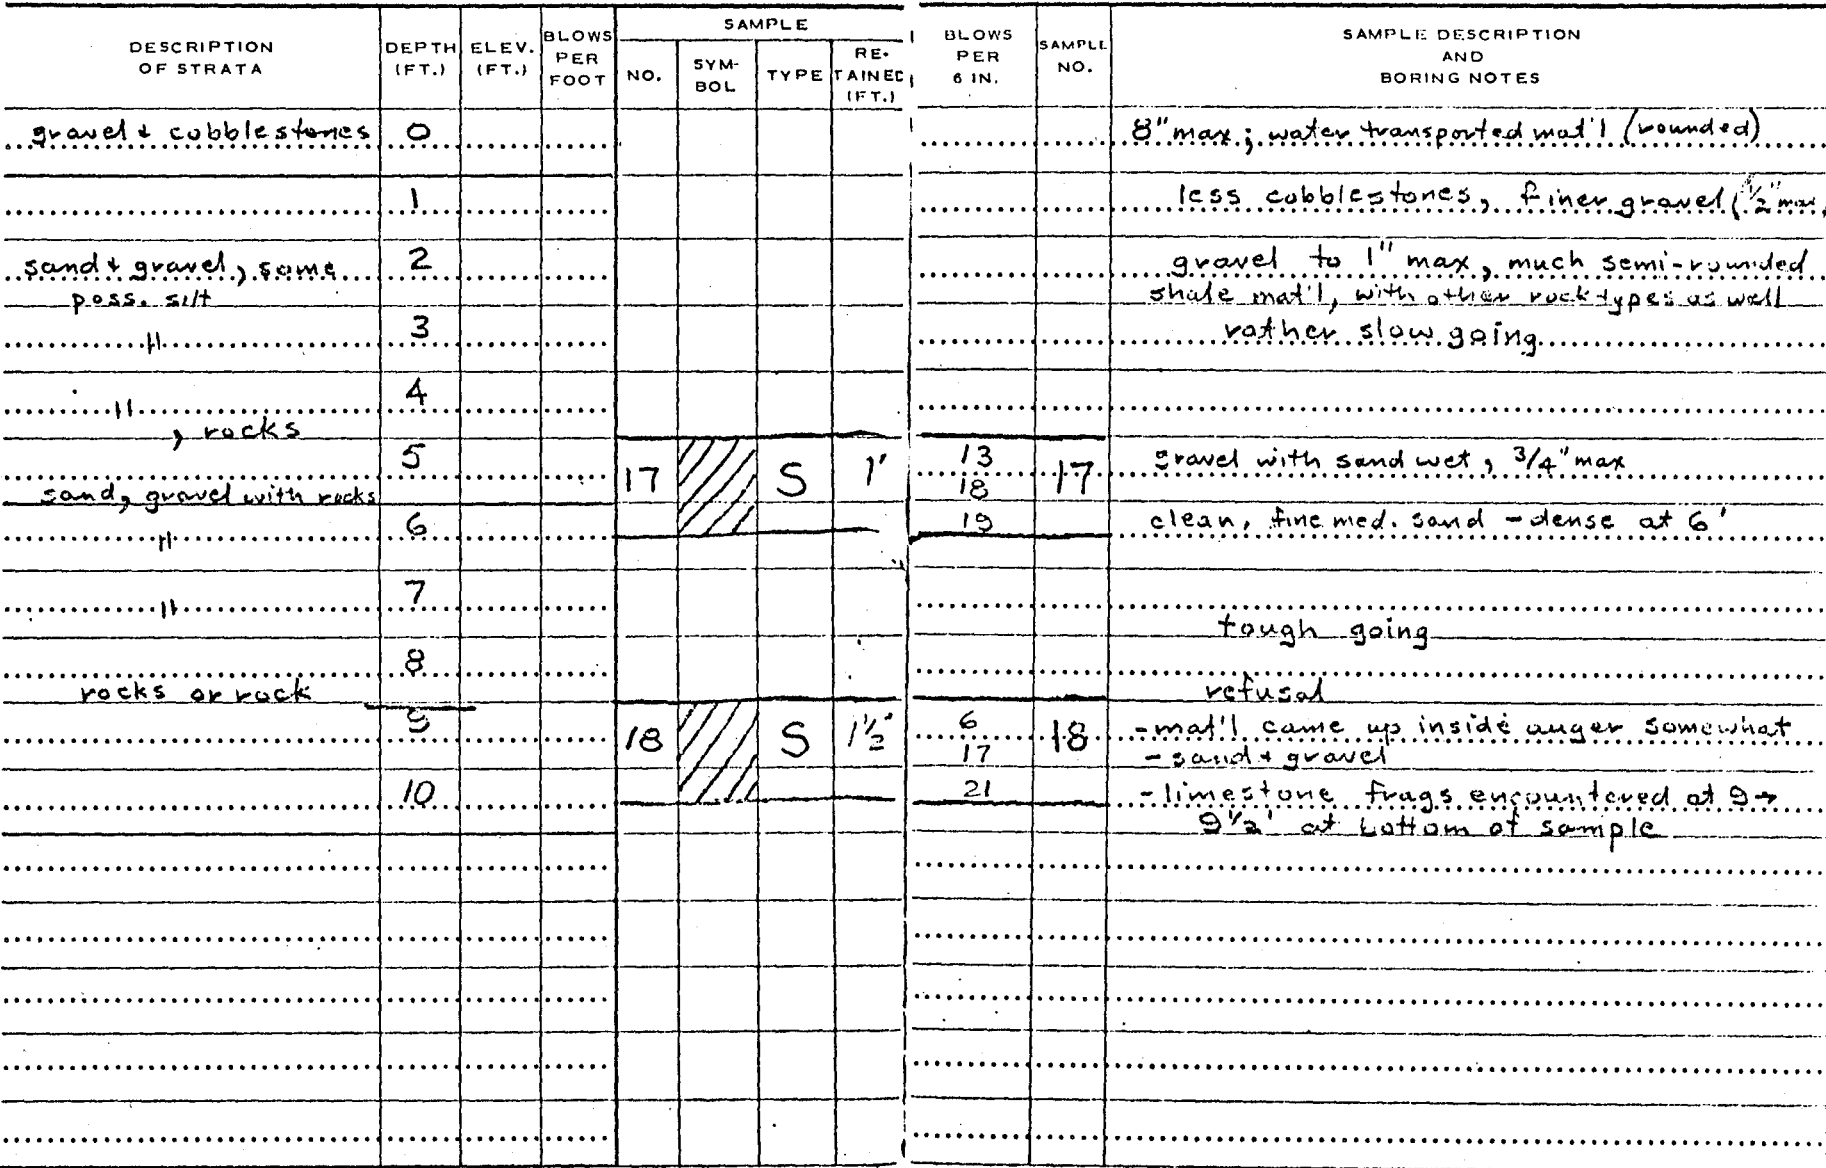 DESCRIPTION OF STRATA DEPTH (FT.) ELEV. (FT.) BLOWS PER FOOT SAMPLE NO. SYM-BOL TYPE RE-TAINED (FT.) BLOWS PER 6 IN. SAMPLE NO. SAMPLE DESCRIPTION AND BORING NOTES
gravel & cobblestones 0 8" max; water transported mat'l (rounded)
1 less cobblestones, finer gravel (1/2" max
sand & gravel, some 2 gravel to 1" max, much semi-rounded
poss. silt shale mat'l, with other rock types as well
" 3 rather slow going
" 4
, rocks
5 17 S 1' 13 17 gravel with sand wet, 3/4" max
sand, gravel with rocks 18
" 6 19 clean, fine med. sand - dense at 6'
" 7
tough going
8
rocks or rock refusal
9 18 S 1½' 6 18 - mat'l came up inside auger somewhat
17 - sand & gravel
10 21 - limestone frags encountered at 9→
9½' at bottom of sample